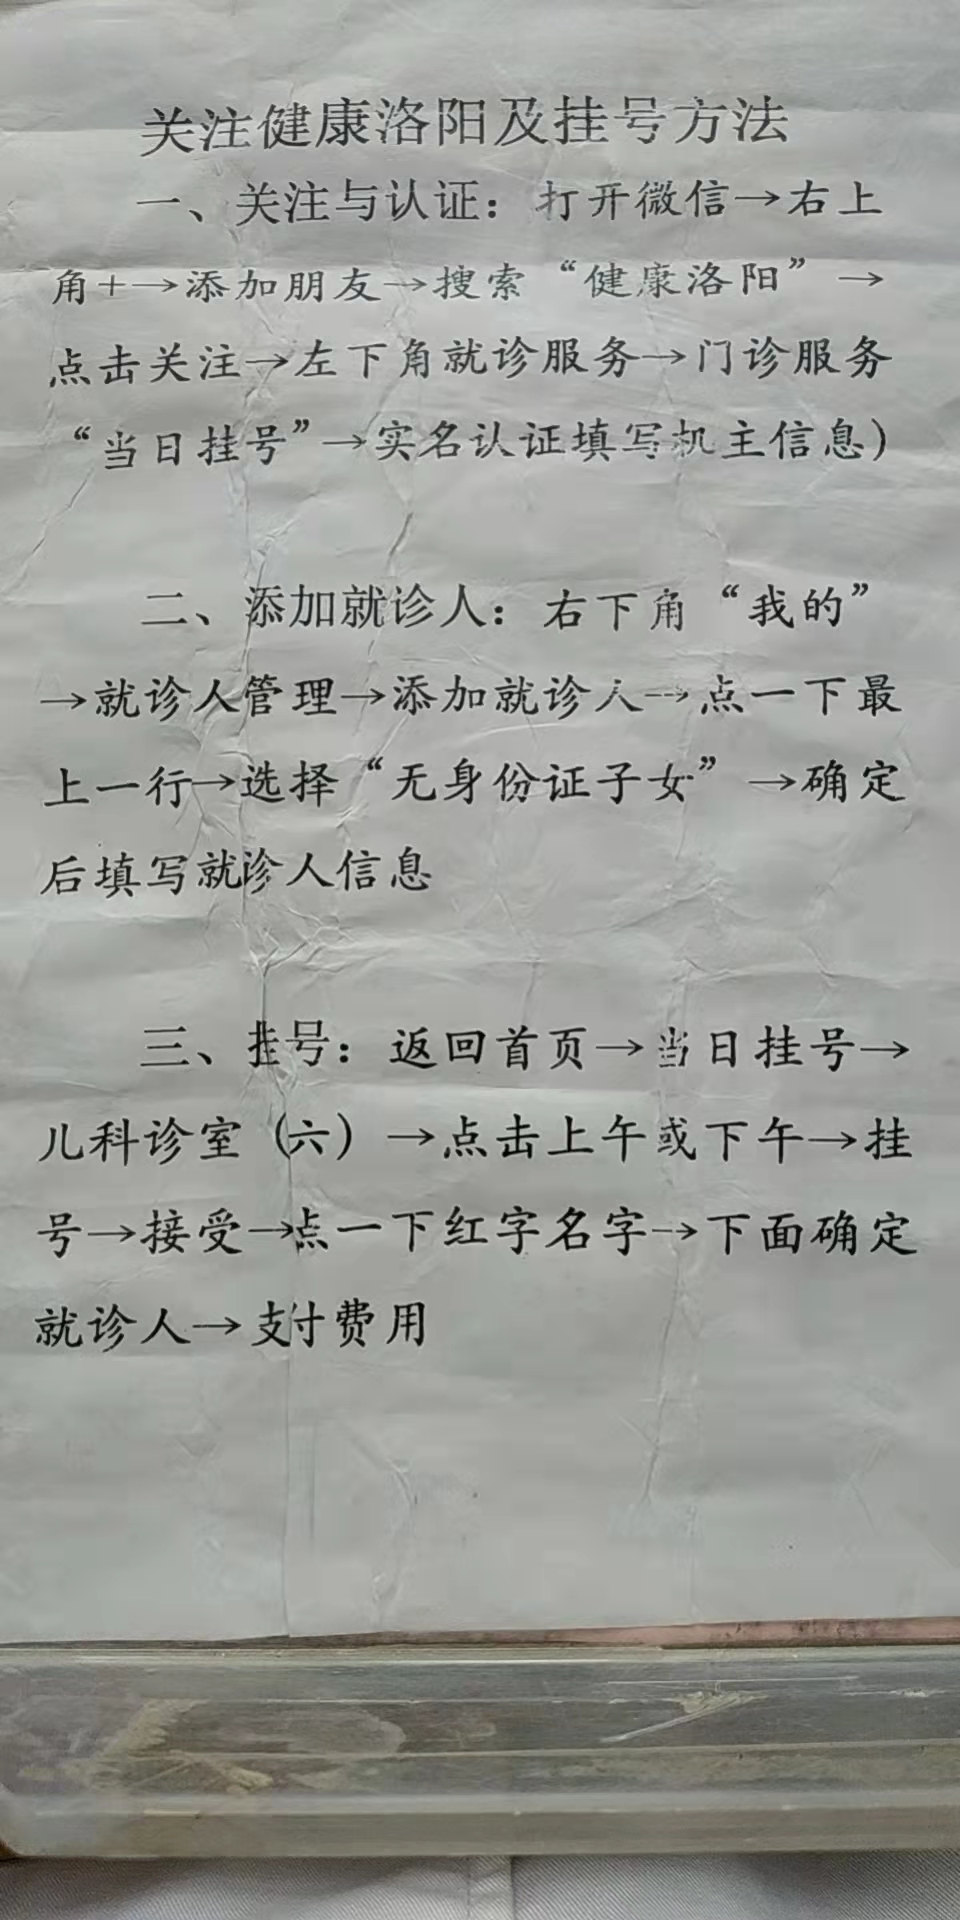 关注健康洛阳及挂号方法
一、关注与认证：打开微信→右上
角+→添加朋友→搜索“健康洛阳”→
点击关注→左下角就诊服务→门诊服务
“当日挂号”→实名认证填写机主信息）
二、添加就诊人：右下角“我的”
→就诊人管理→添加就诊人→点一下最
上一行→选择“无身份证子女”→确定
后填写就诊人信息
三、挂号：返回首页→当日挂号→
儿科诊室（六）→点击上午或下午→挂
号→接受→点一下红字名字→下面确定
就诊人→支付费用